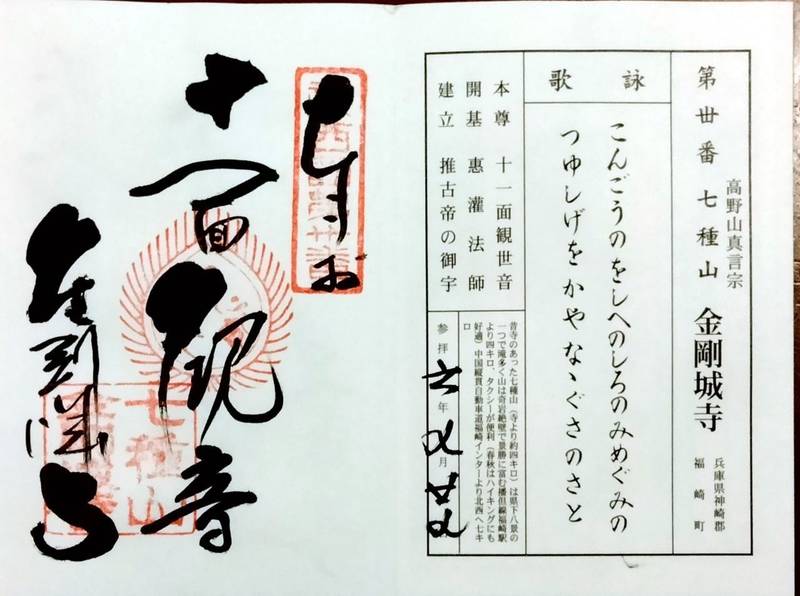 第卅番 七種山 金剛城寺
高野山真言宗
兵庫県神崎郡
福崎町
詠歌
こんごうのをしへのしろのみめぐみの
つゆしげをかやなゝぐさのさと
本尊 十一面観世音
開基 惠灌法師
建立 推古帝の御宇
昔寺のあった七種山(寺より約四キロ)は県下八景の
一つで滝多く山は奇岩絶壁で景勝に富む播但線福崎駅
より四キロ、タクシーが便利(春秋はハイキングにも
好適)中国縦貫自動車道福崎インターより北西へ七キ
ロ
参拝 年 月
十一面観音
金剛城寺
七種山